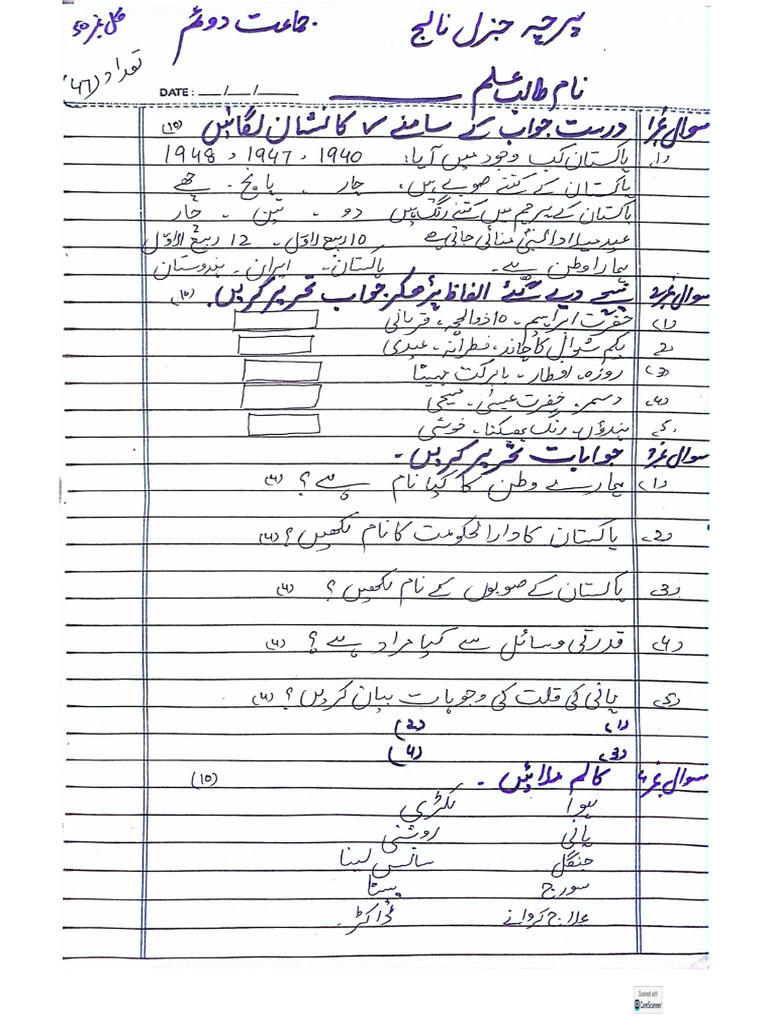 پرچہ جنرل نالج جماعت دوئم کل نمبر 50
تعداد (46)
نام طالب علم ________ DATE: __/__/__
سوال نمبر1 درست جواب کے سامنے ✓ کا نشان لگائیں (10)
(1) پاکستان کب وجود میں آیا: 1940 ، 1947 ، 1948
پاکستان کے کتنے صوبے ہیں، چار ۔ پانچ ۔ چھے
پاکستان کے پرچم میں کتنے رنگ ہیں دو ۔ تین ۔ چار
عید میلادالنبی منائی جاتی ہے 10 ربیع الاول ۔ 12 ربیع الاول
ہمارا وطن ہے۔ پاکستان ۔ ایران ۔ ہندوستان
سوال نمبر2 نیچے دیے گئے الفاظ پڑھ کر جواب تحریر کریں۔ (10)
(1) حضرت ابراہیم ۔ 10 ذوالحجہ ، قربانی
2) یکم شوال کا چاند ، فطرانہ ، عیدی
(3) روزہ ، افطار ۔ بابرکت مہینا
(4) دسمبر ۔ حضرت عیسیٰ ۔ مسیحی
5) ہندوؤں ۔ رنگ پھینکنا ، خوشی
سوال نمبر3 جوابات تحریر کریں ۔
(1) ہمارے وطن کا کیا نام ہے ؟ (4)
(2) پاکستان کا دارالحکومت کا نام لکھیں ؟ (4)
(3) پاکستان کے صوبوں کے نام لکھیں ؟ (4)
(4) قدرتی وسائل سے کیا مراد ہے ؟ (4)
(5) پانی کی قلت کی وجوہات بیان کریں ؟ (4)
(1) (2)
(3) (4)
سوال نمبر4 کالم ملائیں ۔ (10)
ہوا لکڑی
پانی روشنی
جنگل سانس لینا
سورج پینا
علاج کروانے ڈاکٹر۔
Scanned with
CamScanner